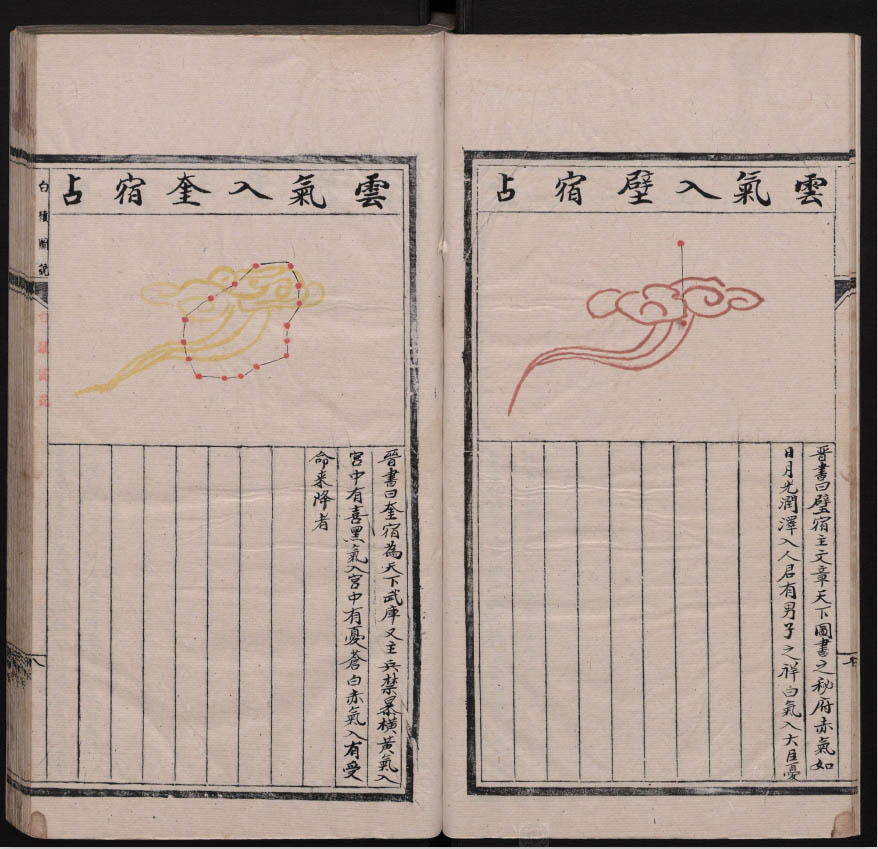 雲氣入壁宿占
晋書曰壁宿主文章天下圖書之秘府赤氣如
日月光潤澤入人君有男子之祥白氣入大臣憂
雲氣入奎宿占
晋書曰奎宿為天下武庫又主兵禁暴橫黃氣入
宮中有喜黑氣入宮中有憂蒼白赤氣入有受
命来降者
白猿圖說
八